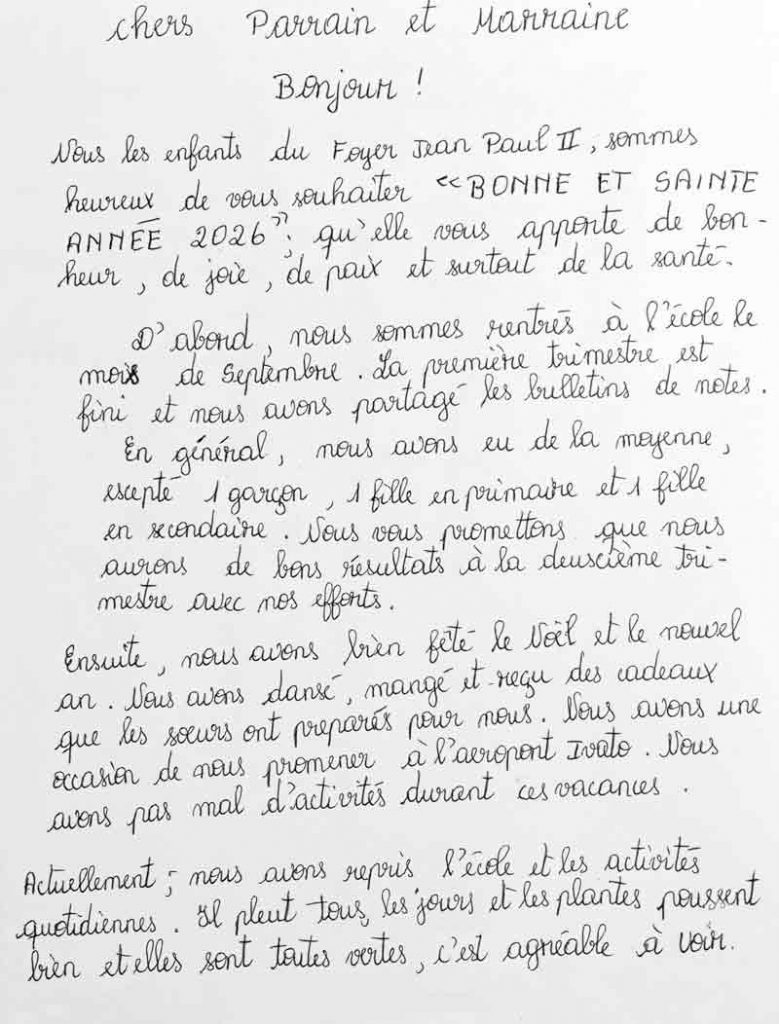 chers Parrain et Marraine
Bonjour !
Nous les enfants du Foyer Jean Paul II, sommes
heureux de vous souhaiter «BONNE ET SAINTE
ANNÉE 2026", qu'elle vous apporte de bon-
heur, de joie, de paix et surtout de la santé.
D'abord, nous sommes rentrés à l'école le
mois de Septembre. La première trimestre est
fini et nous avons partagé les bulletins de notes.
En général, nous avons eu de la moyenne,
escepté 1 garçon, 1 fille en primaire et 1 fille
en secondaire. Nous vous promettons que nous
aurons de bons résultats à la deuscième tri-
mestre avec nos efforts.
Ensuite, nous avons bien fêté le Noël et le nouvel
an. Nous avons dansé, mangé et reçu des cadeaux
que les sœurs ont préparés pour nous. Nous avons une
occasion de nous promener à l'aeropont Ivato. Nous
avons pas mal d'activités durant ces vacances.
Actuellement; nous avons repris l'école et les activités
quotidiennes. Il pleut tous les jours et les plantes poussent
bien et elles sont toutes vertes, c'est agréable à voir.